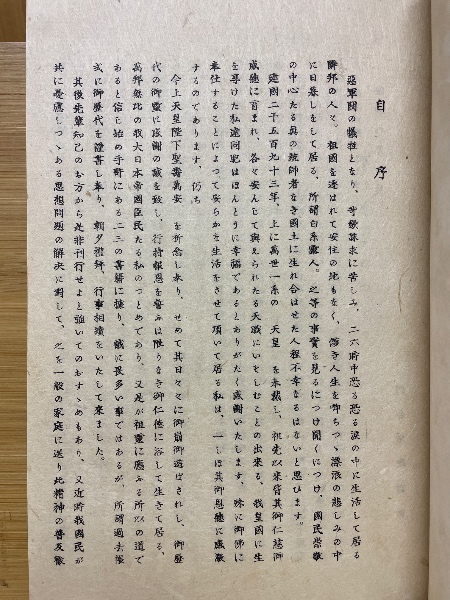 自序
惡軍閥の犠牲となり、苛斂誅求に苦しみ、二六時中恐る恐る淚の中に生活して居る
隣邦の人々。祖國を逐はれて安住の地もなく、儚き人生を卸ちつゝ漂浪の悲しみの中
に日暮しをして居る、所謂白系露人。之等の事實を見るにつけ聞くにつけ、國民崇敬
の中心たる眞の統帥者なき國土に生れ合はせた人程不幸なるはないと思ひます。
建國二千五百九十三年、上に萬世一系の　天皇　を奉戴し、祖先以來皆其御仁慈御
威德に育まれ、各々安んじて與へられたる天職にいそしむことの出來る、我皇國に生
を享けた私達同胞はほんとうに幸福であるとありがたく感謝いたします。殊に御佛に
奉仕することによつて安らかな生活をさせて頂いて居る私は、一しほ其御恩德に感激
するのであります。仍ち
今上天皇陛下聖壽萬安　を祈念し奉り、せめて其日々々に御崩御遊ばされし、御歷
代の御靈に感謝の誠を致し、行持報恩を誓ふは限りなき御仁德に浴して生きて居る、
萬邦無比の我大日本帝國臣民たる私のつとめであり、又是が祖靈に應ふる所以の道で
あると信じ始め手許にある二三の書籍に據り、誠に畏多い事ではあるが、所謂過去帳
式に御歷代を謹書し奉り、朝夕禮拜、行事相續をいたして來ました。
其後先輩知己のお方から是非刊行せよと强いてのおすゝめもあり、又近時我國民が
共に憂慮しつゝある思想問題の解決に對して、之を一般の家庭に送り此精神の普及徹